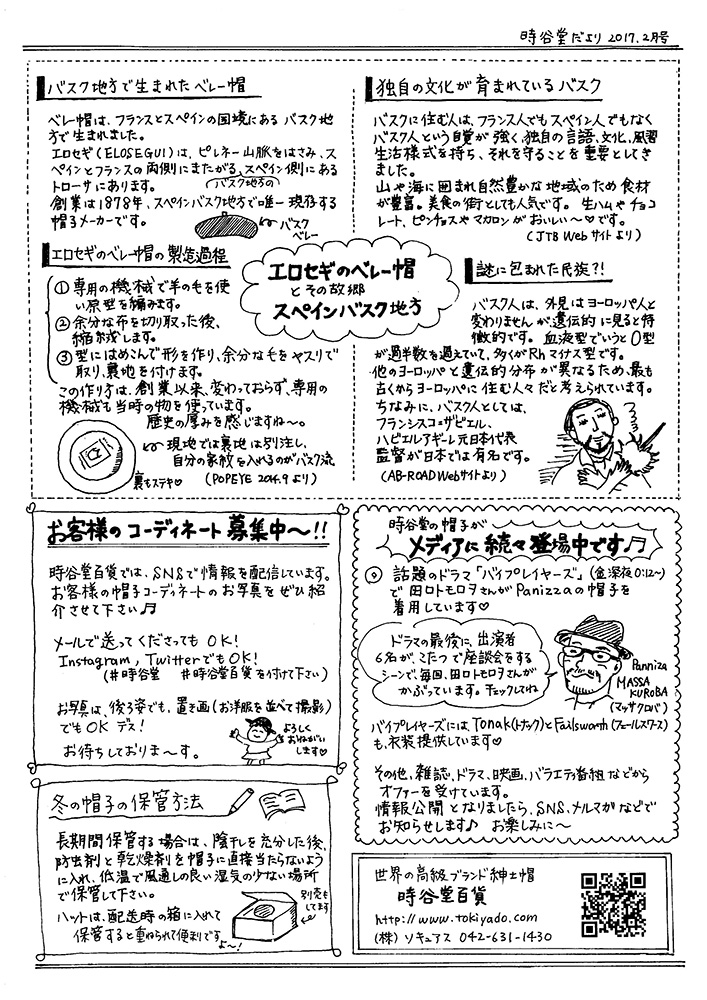 時谷堂だより 2017.2月号
バスク地方で生まれた ベレー帽
ベレー帽は、フランスとスペインの国境にある バスク地
方で生まれました。
エロセギ(ELOSEGUI)は、ピレネー山脈をはさみ、ス
ペインとフランスの両側にまたがる、スペイン側にある
バスク地方の
トローサにあります。
創業は1878年、スペインバスク地方で唯一現存する
帽子メーカーです。
バスク
ベレー
独自の文化が育まれている バスク
バスクに住む人は、フランス人でもスペイン人でもなく
バスク人という自覚が強く、独自の言語、文化、風習
生活様式を持ち、それを守ることを重要としてき
ました。
山や海に囲まれ自然豊かな地域のため食材
が豊富。美食の街としても人気です。生ハムやチョコ
レート、ピンチョスやマカロンがおいしい〜♡です。
(JTB Webサイトより)
エロセギのベレー帽
とその故郷
スペインバスク地方
エロセギのベレー帽の製造過程
① 専用の機械で羊の毛を使
い原型を編みます。
② 余分な布を切り取った後、
縮絨します。
③ 型にはめこんで形を作り、余分な毛をヤスリで
取り、裏地を付けます。
この作り方は、創業以来、変わっておらず、専用の
機械も当時の物を使っています。
歴史の厚みを感じますね〜。
現地では裏地は別注し、
自分の家紋を入れるのがバスク流
裏もステキ♡
(POPEYE 2014.9より)
謎に包まれた民族?!
バスク人は、外見はヨーロッパ人と
変わりませんが遺伝的に見ると特
徴的です。血液型でいうとO型
が過半数を超えていて、多くがRhマイナス型です。
他のヨーロッパと遺伝的分布が異なるため、最も
古くからヨーロッパに住む人々だと考えられています。
ちなみに、バスク人としては、
フランシスコ=ザビエル、
ハビエルアギーレ元日本代表
監督が日本では有名です。
(AB-ROADWebサイトより)
お客様のコーディネート募集中〜!!
時谷堂百貨では、SNSで情報を配信しています。
お客様の帽子コーディネートのお写真をぜひ紹
介させて下さい♬
メールで送ってくださってもOK!
Instagram, TwitterでもOK!
(#時谷堂 #時谷堂百貨を付けて下さい)
お写真は、後ろ姿でも、置き画(お洋服を並べて撮影)
でもOK デス!
お待ちしておりま〜す。
よろしく
おねがい
します♡
時谷堂の帽子が
メディアに続々登場中です♬
話題のドラマ「バイプレイヤーズ」(金深夜0:12〜)
で田口トモロヲさんがPanizzaの帽子を
着用しています♡
ドラマの最後に、出演者
6名が、こたつで座談会をする
シーンで、毎回、田口トモロヲさんが
かぶっています。チェックしてね
Panniza
MASSA
KUROBA
(マッサクロバ)
バイプレイヤーズには、Tonak(トナック)とFailsworth(フェールスワース)
も、衣装提供しています♡
その他、雑誌、ドラマ、映画、バラエティ番組などから
オファーを受けています。
情報公開となりましたら、SNS、メルマガなどで
お知らせします♪ お楽しみに〜
冬の帽子の保管方法
長期間保管する場合は、陰干しを充分した後、
防虫剤と乾燥剤を帽子に直接当たらないよう
に入れ、低温で風通しの良い湿気の少ない場所
で保管して下さい。
ハットは、配送時の箱に入れて
保管すると重ねられて便利ですよ〜!
別売も
してます
世界の高級ブランド紳士帽
時谷堂百貨
http://www.tokiyado.com
(株)ソキュアス 042-631-1430